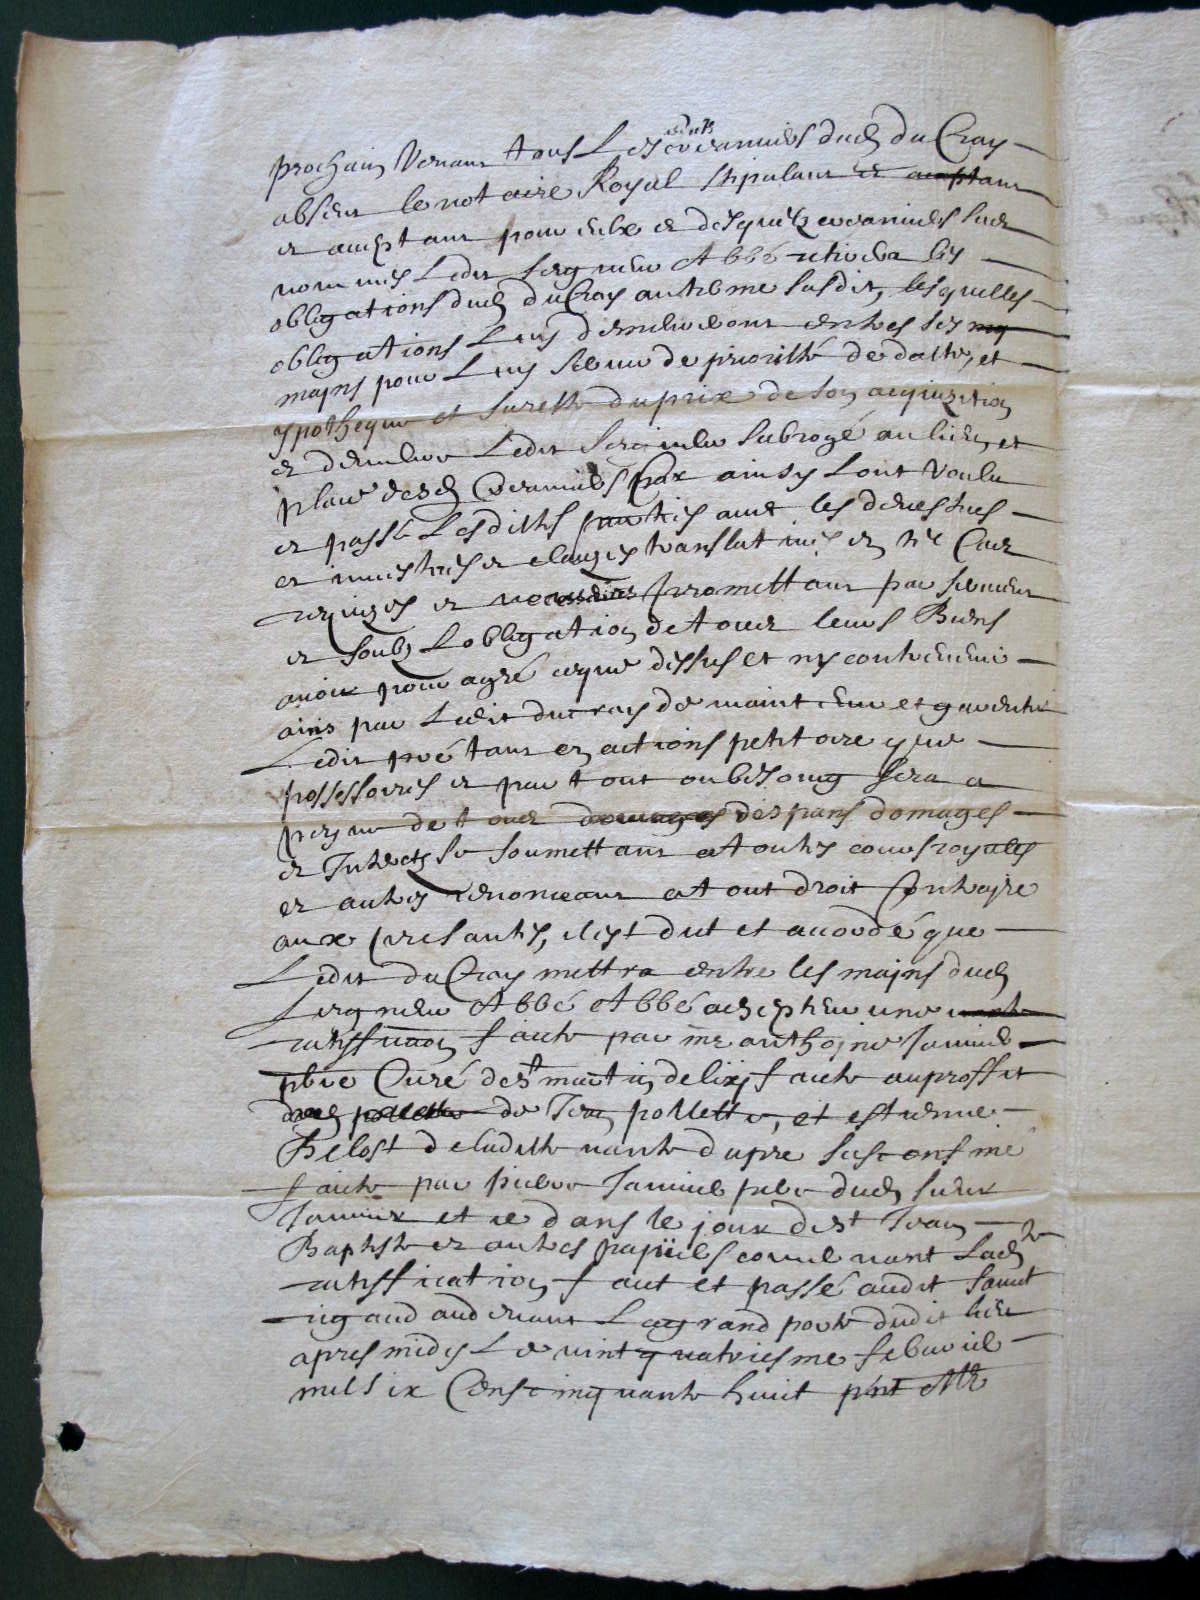 prochain venant tous les creanciers dud du Cray
absent le notaire Royal stipulant et
et acceptant pour eulx et desquelz creanciers sus
nommes Ledit seigneur Abbé retirera les
obligations dud du Cray au terme susdit, lesquelles
obligations luy demeureront entres ses
mains pour luy servir de prioritté de datte, et
ypotheque et surette du prix de son acquizition
et demeure Ledit seigneur subrogé au lieu, et
place desd Creanciers Car ainsy lont voulu
et passé Lesdittes parties avec les
et clauzes translatives en tel cas
requizes et necessaires promettans par serment
et soubz Lobligation de tous leurs Biens
avoir pour agré ceque dessus et ny contrevenir
ains par Ledit du cray de maintenir et garentir
Ledit pré tant en actions petitoire que
possessoires et par tout ou besoing sera a
peyne de tous despans domages
et Interetz se soumettans a toutes cours royalles
et autres renonceant a tout droit Contraire
aux presantes, et est dit et accordé que
Ledit du Cray mettra entre les mains dud
seigneur Abbé Abbé une
rattiffication faite par me anthoine Jamier
pbre Curé de st martin de lixy faite au proffit
de Jean pollette, et estienne
Belost de laditte vante du pre sus confiné
faite par pierre Jamier pere dud sieur
Jamier et ce dans le jour de st Jean
Baptiste et autres papiers concernant lad
rattiffication fait et passé audit saint
rigaud au devant La grand porte dudit lieu
apres midy Le vint quatriesme febvrier
mil six Cens cinquante huit pnt Mr